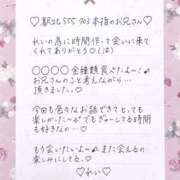 ♡駅北 555 703 本指のお兄さん♡
れいの為に時間作って会いに来て
くれてありがとう♡(は)
〇〇〇〇 全種類食べたよー♪
お兄さんのこと考えながら...
頂きました♡
今回も色々なお話できてとっても
楽しかったんでもぎゅーしてる時間
も好きなの...♡
また会いたいなぁーまた会える日
楽しみにしてるね♡
♡れい♡